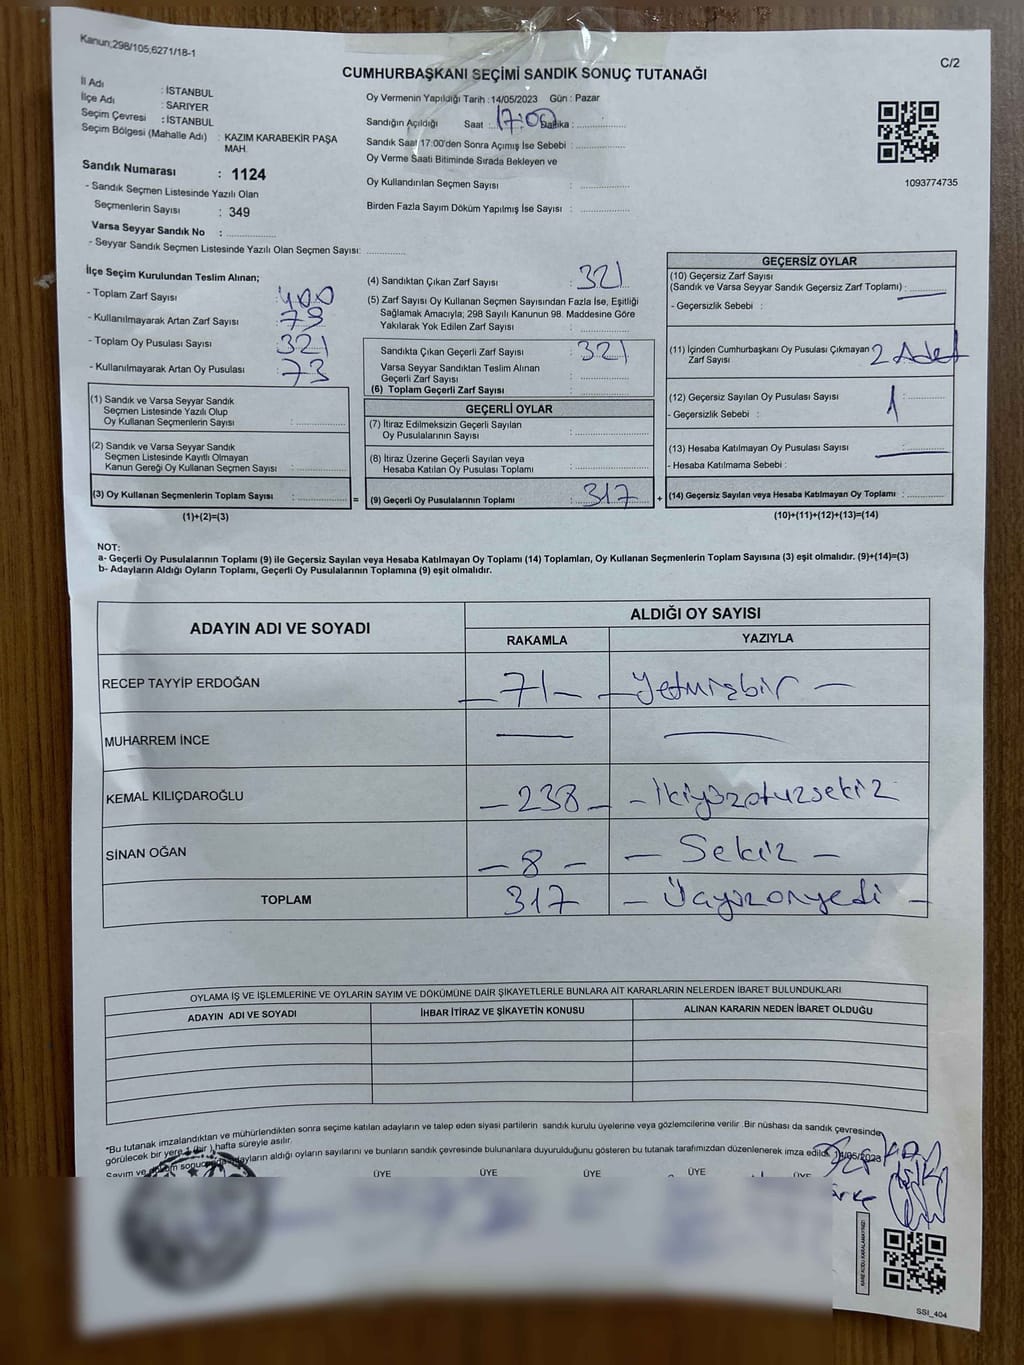 Kanun;298/105,6271/18-1
C/2
CUMHURBAŞKANI SEÇİMİ SANDIK SONUÇ TUTANAĞI
İl Adı : İSTANBUL
İlçe Adı : SARIYER
Seçim Çevresi : İSTANBUL
Seçim Bölgesi (Mahalle Adı) : KAZIM KARABEKİR PAŞA MAH.
Sandık Numarası : 1124
- Sandık Seçmen Listesinde Yazılı Olan
Seçmenlerin Sayısı : 349
Varsa Seyyar Sandık No :
- Seyyar Sandık Seçmen Listesinde Yazılı Olan Seçmen Sayısı:
Oy Vermenin Yapıldığı Tarih :14/05/2023 Gün : Pazar
Sandığın Açıldığı Saat : 17:00 Dakika :
Sandık Saat 17:00'den Sonra Açımış İse Sebebi :
Oy Verme Saati Bitiminde Sırada Bekleyen ve
Oy Kullandırılan Seçmen Sayısı :
Birden Fazla Sayım Döküm Yapılmış İse Sayısı :
1093774735
İlçe Seçim Kurulundan Teslim Alınan;
- Toplam Zarf Sayısı : 400
- Kullanılmayarak Artan Zarf Sayısı : 79
- Toplam Oy Pusulası Sayısı : 321
- Kullanılmayarak Artan Oy Pusulası : 73
(1) Sandık ve Varsa Seyyar Sandık
Seçmen Listesinde Yazılı Olup
Oy Kullanan Seçmenlerin Sayısı :
(2) Sandık ve Varsa Seyyar Sandık
Seçmen Listesinde Kayıtlı Olmayan
Kanun Gereği Oy Kullanan Seçmen Sayısı :
(3) Oy Kullanan Seçmenlerin Toplam Sayısı :
(1)+(2)=(3)
(4) Sandıktan Çıkan Zarf Sayısı : 321
(5) Zarf Sayısı Oy Kullanan Seçmen Sayısından Fazla İse, Eşitliği
Sağlamak Amacıyla; 298 Sayılı Kanunun 98. Maddesine Göre
Yakılarak Yok Edilen Zarf Sayısı :
Sandıkta Çıkan Geçerli Zarf Sayısı : 321
Varsa Seyyar Sandıktan Teslim Alınan
Geçerli Zarf Sayısı :
(6) Toplam Geçerli Zarf Sayısı :
GEÇERLİ OYLAR
(7) İtiraz Edilmeksizin Geçerli Sayılan
Oy Pusulalarının Sayısı :
(8) İtiraz Üzerine Geçerli Sayılan veya
Hesaba Katılan Oy Pusulası Toplamı :
= (9) Geçerli Oy Pusulalarının Toplamı : 317 +
GEÇERSİZ OYLAR
(10) Geçersiz Zarf Sayısı
(Sandık ve Varsa Seyyar Sandık Geçersiz Zarf Toplamı) :
- Geçersizlik Sebebi :
(11) İçinden Cumhurbaşkanı Oy Pusulası Çıkmayan
Zarf Sayısı 2 Adet
(12) Geçersiz Sayılan Oy Pusulası Sayısı : 1
- Geçersizlik Sebebi :
(13) Hesaba Katılmayan Oy Pusulası Sayısı :
- Hesaba Katılmama Sebebi :
(14) Geçersiz Sayılan veya Hesaba Katılmayan Oy Toplamı :
(10)+(11)+(12)+(13)=(14)
NOT:
a- Geçerli Oy Pusulalarının Toplamı (9) ile Geçersiz Sayılan veya Hesaba Katılmayan Oy Toplamı (14) Toplamları, Oy Kullanan Seçmenlerin Toplam Sayısına (3) eşit olmalıdır. (9)+(14)=(3)
b- Adayların Aldığı Oyların Toplamı, Geçerli Oy Pusulalarının Toplamına (9) eşit olmalıdır.
ADAYIN ADI VE SOYADI
ALDIĞI OY SAYISI
RAKAMLA YAZIYLA
RECEP TAYYİP ERDOĞAN - 71 - - Yetmişbir -
MUHARREM İNCE
KEMAL KILIÇDAROĞLU - 238 - - İkiyüzotuzsekiz
SİNAN OĞAN - 8 - - Sekiz -
TOPLAM 317 - Üçyüzonyedi -
OYLAMA İŞ VE İŞLEMLERİNE VE OYLARIN SAYIM VE DÖKÜMÜNE DAİR ŞİKAYETLERLE BUNLARA AİT KARARLARIN NELERDEN İBARET BULUNDUKLARI
ADAYIN ADI VE SOYADI İHBAR İTİRAZ VE ŞİKAYETİN KONUSU ALINAN KARARIN NEDEN İBARET OLDUĞU
*Bu tutanak imzalandıktan ve mühürlendikten sonra seçime katılan adayların ve talep eden siyasi partilerin sandık kurulu üyelerine veya gözlemcilerine verilir .Bir nüshası da sandık çevresinde
görülecek bir yere 1 (bir ) hafta süreyle asılır.
Sayım ve döküm adayların aldığı oyların sayılarını ve bunların sandık çevresinde bulunanlara duyurulduğunu gösteren bu tutanak tarafımızdan düzenlenerek imza edildi. 14/05/2023
ÜYE ÜYE ÜYE ÜYE ÜYE
KARE KODU KARALAMAYINIZ!
SSI_404